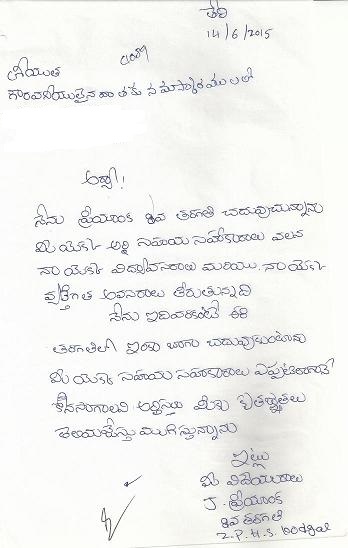 తేది
14/6/2015
శ్రీయుత
గౌరవనీయులైన వారికి నమస్కారములతో
అక్కా!
నేను ప్రియాంక 8వ తరగతి చదువుచున్నాను
మీ యొక్క అన్ని సహాయ సహకారాలు వలన
నా యొక్క విద్యావసరాలు మరియు నా యొక్క
వ్యక్తిగత అవసరాలు తీరుతున్నది
నేను ఇదివరకంటే ఈ
తరగతిలో ఇంకా బాగా చదువుకుంటాను
మీ యొక్క సహాయ సహకారాలు ఎప్పటికాగాదే
కొనసాగాలని ఆశిస్తూ మీకు కృతజ్ఞతలు
తెలియజేస్తు ముగిస్తున్నాను
ఇట్లు
మీ విధేయురాలు
J. ప్రియాంక
8వ తరగతి
Z.P.H.S.